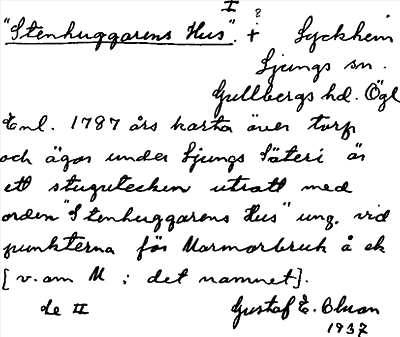 I ?
"Stenhuggarens Hus". + Lyckhem
Ljungs sn.
Gullbergs hd. Ögl
Enl. 1787 års karta över torp
och ägor under Ljungs Säteri är
ett stugutecken utsatt med
orden "Stenhuggarens Hus" ung. vid
punkterna för Marmorbruk å ek
[v. om M i det namnet].
de II Gustaf E. Bluan
1937